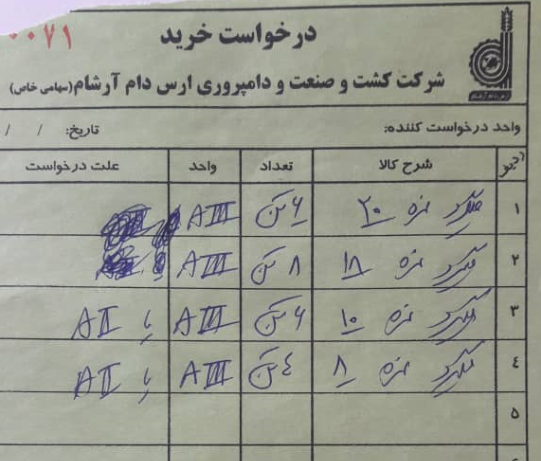 ۰۰۷۱
درخواست خرید
شرکت کشت و صنعت و دامپروری ارس دام آرشام (سهامی خاص)
واحد درخواست کننده: تاریخ: / /
ردیف شرح کالا تعداد واحد علت درخواست
۱ میلگرد نمره ۲۰ ۶ تن AIII
۲ میلگرد نمره ۱۸ ۸ تن AIII
۳ میلگرد نمره ۱۰ ۶ تن AIII یا AII
۴ میلگرد نمره ۸ ٤ تن AIII یا AII
۵